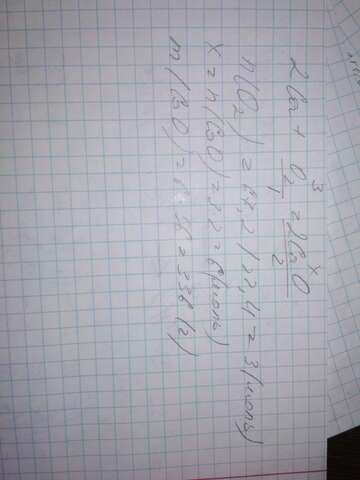 3 x
2Ca + O₂ = 2CaO
1 2
n(O₂) = 67,2 / 22,4 = 3 (моль)
x = n(CaO) = 3·2 = 6 (моль)
m(CaO) = 6·56 = 336 (г)